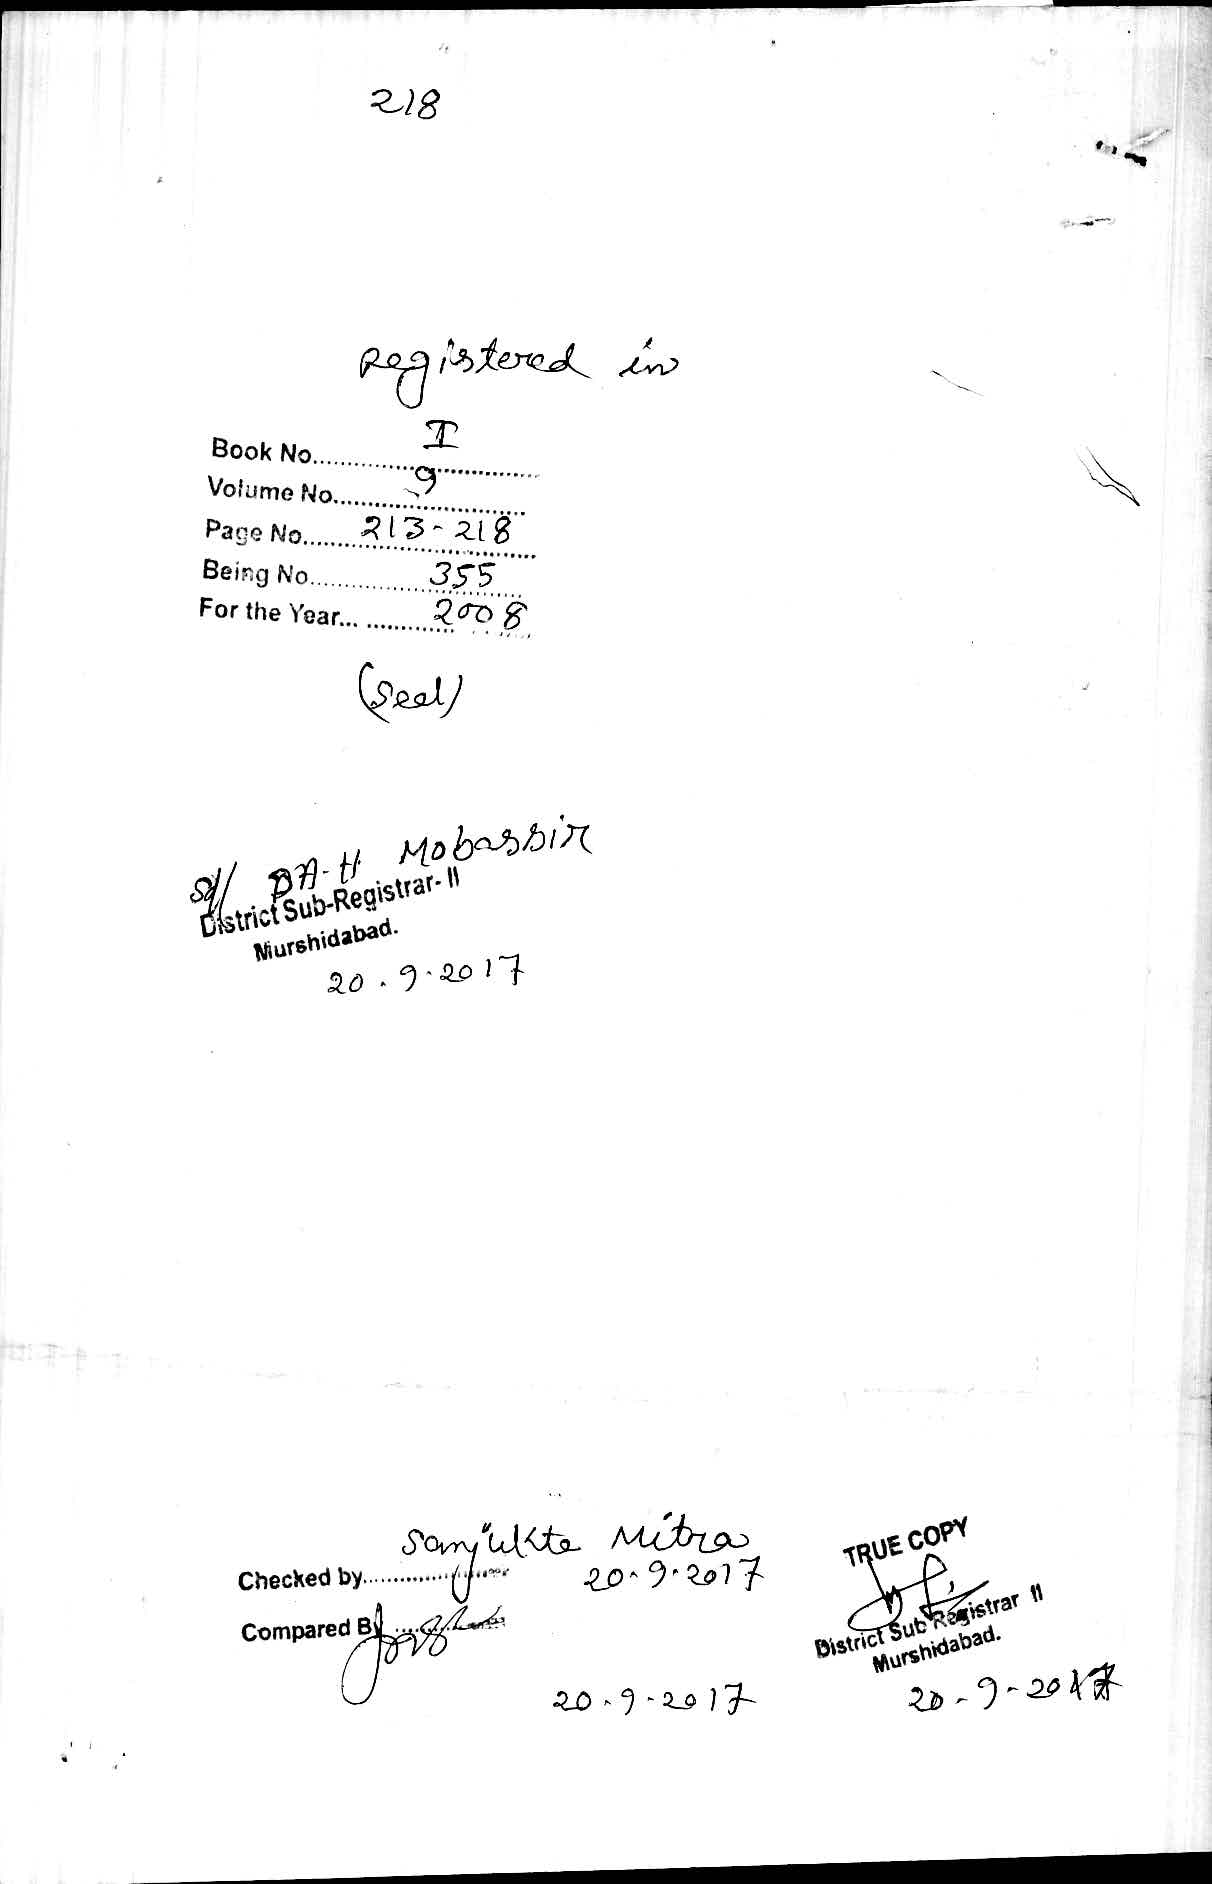 218
Registered in
Book No............I
Volume No............9
Page No.......213-218
Being No............355
For the Year... ............2008
(Seal)
Sd/ DA-H Mobassir
District Sub-Registrar-II
Murshidabad.
20.9.2017
Sanjukta Mitra
Checked by............ 20.9.2017
Compared By............
20.9.2017
TRUE COPY
District Sub Registrar II
Murshidabad.
20-9-2017